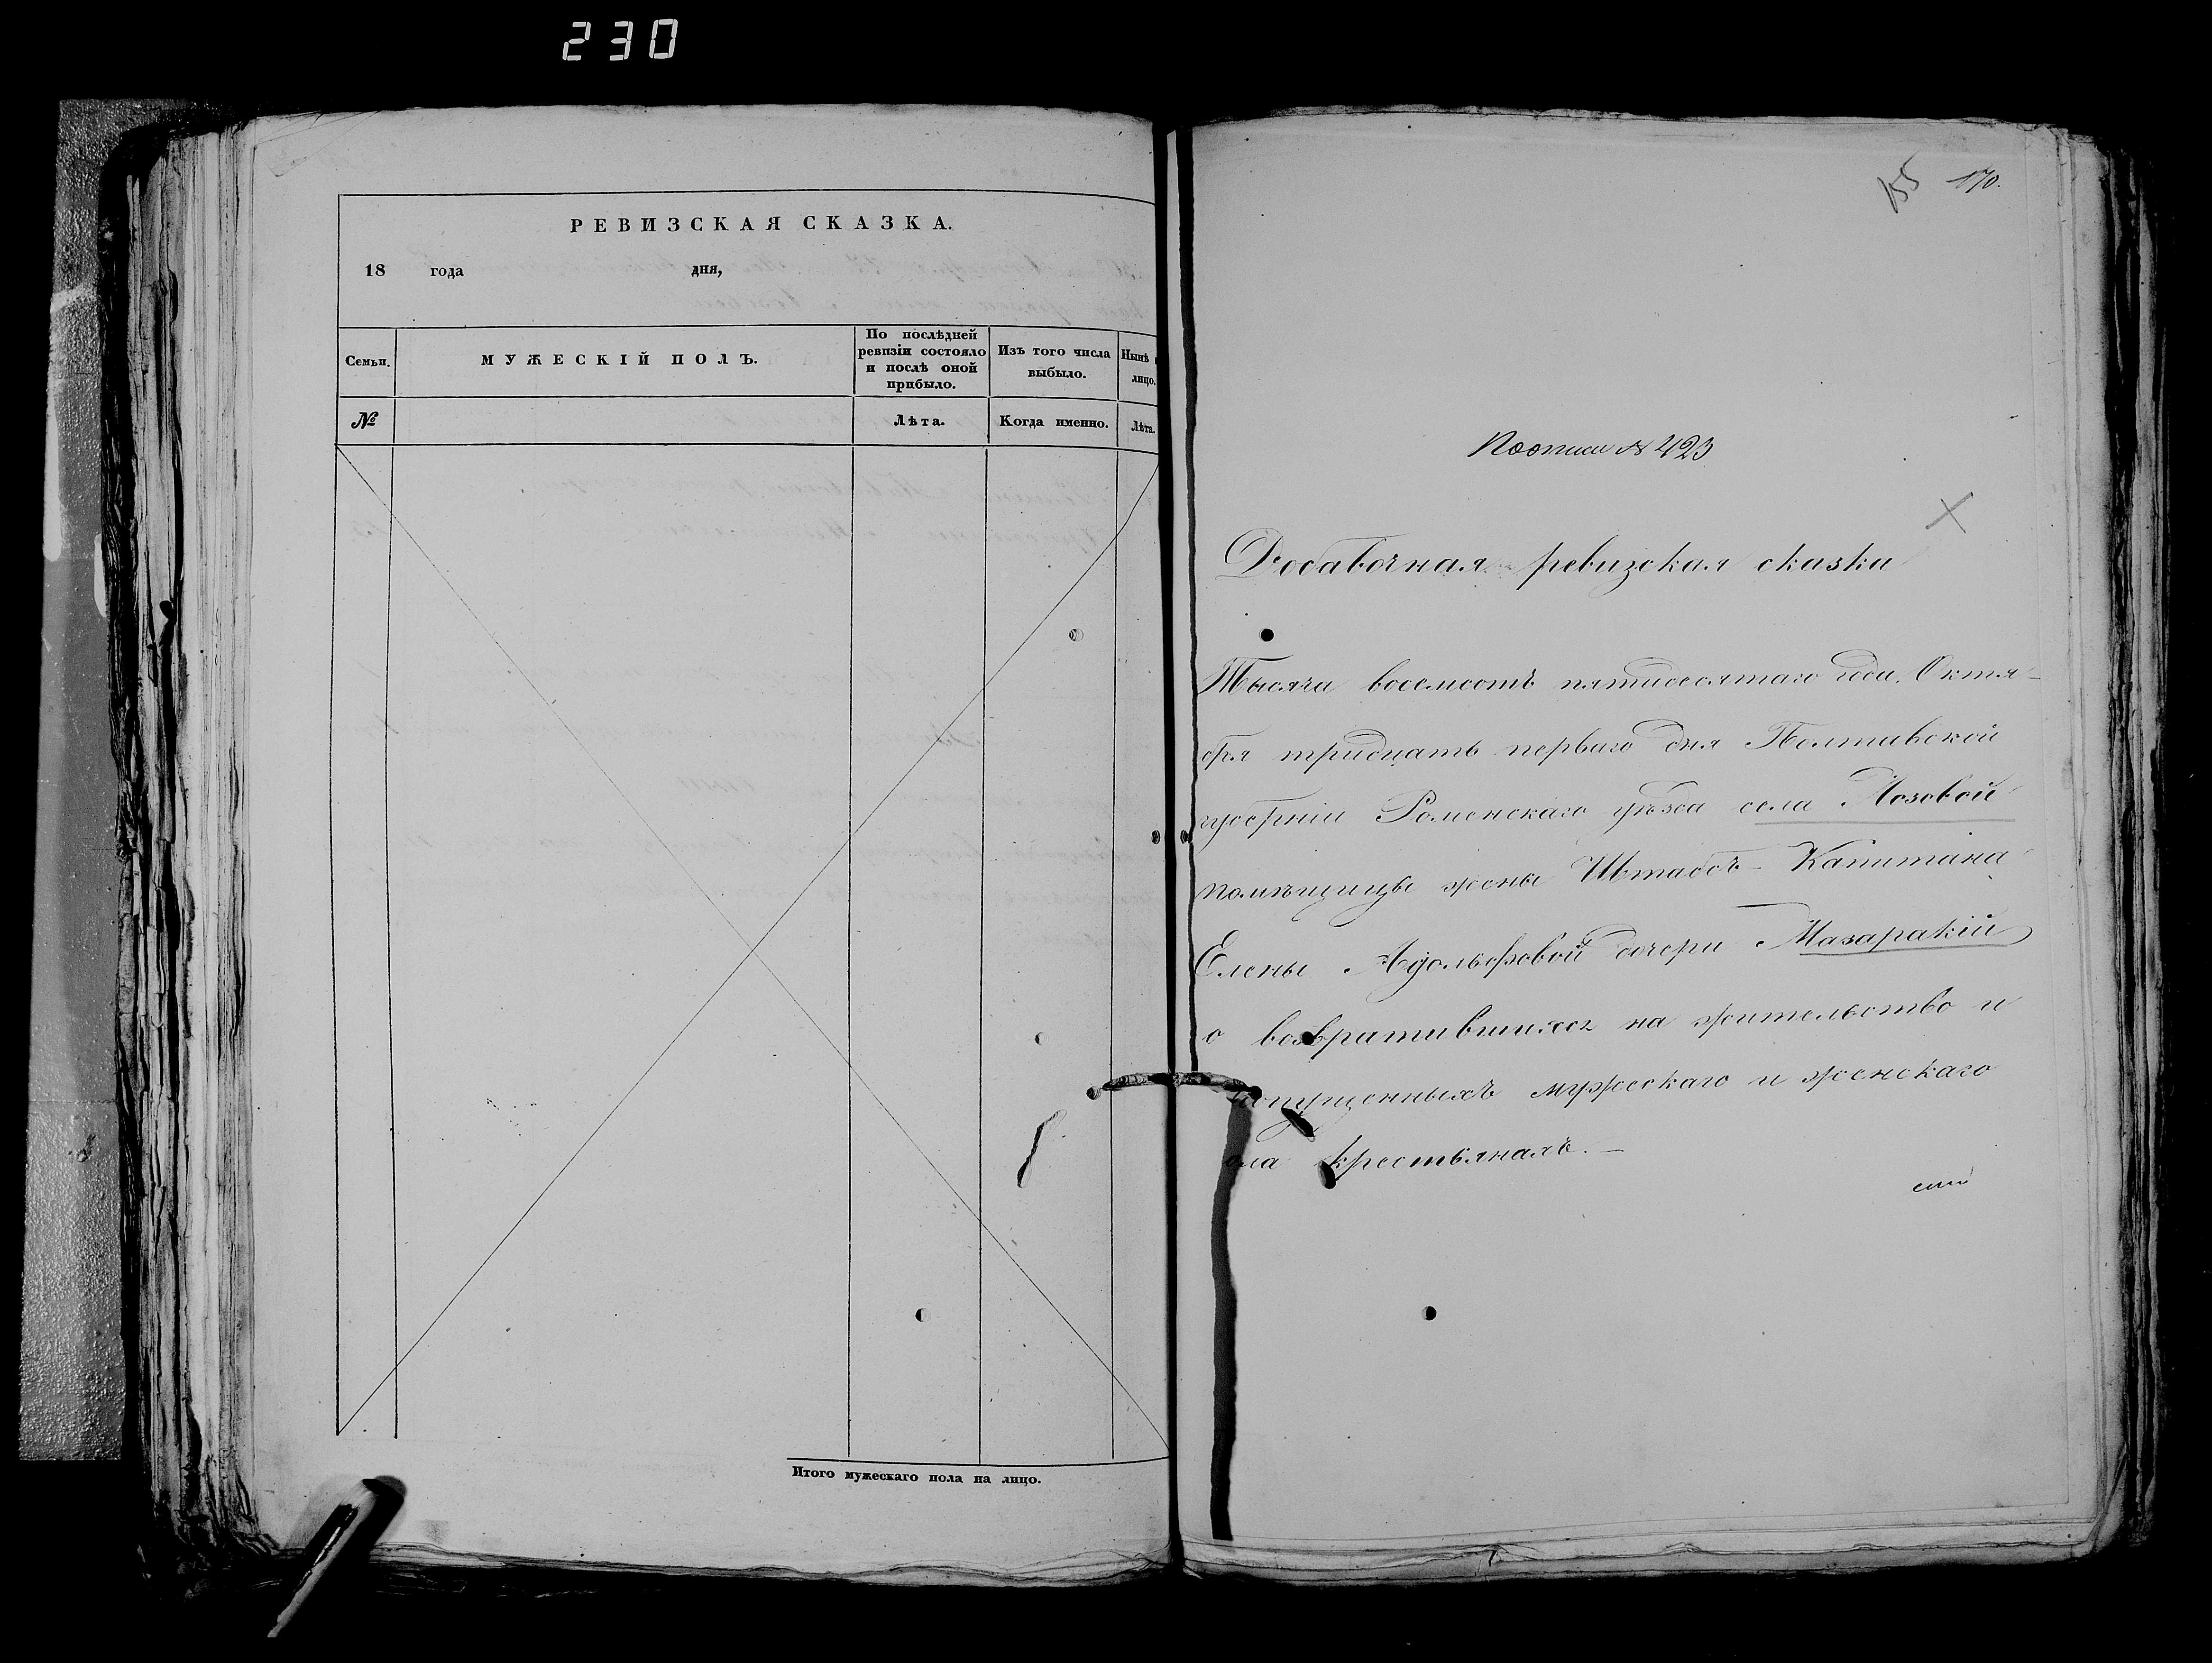 230
РЕВИЗСКАЯ СКАЗКА.
18 года дня,
Семьи.
МУЖЕСКІЙ ПОЛЪ.
По послѣдней ревизіи состояло и послѣ оной прибыло.
Изъ того числа выбыло.
Нынѣ
лицо.
№
Лѣта.
Когда именно.
Лѣта.
Итого мужескаго пола на лицо.
155 170.
По описи № 423
Добавочная ревизская сказка
Тысяча восемсотъ пятидесятаго года. Октя-
бря тридцать перваго дня Полтавской
губерніи Роменскаго уѣзда села Лозовой
помѣщицы жены Штабсъ-Капитана
Елены Адольфовой дочери Мазаракій
о возвратившихся на жительство и
пропущенныхъ мужескаго и женскаго
пола крестьянахъ. —